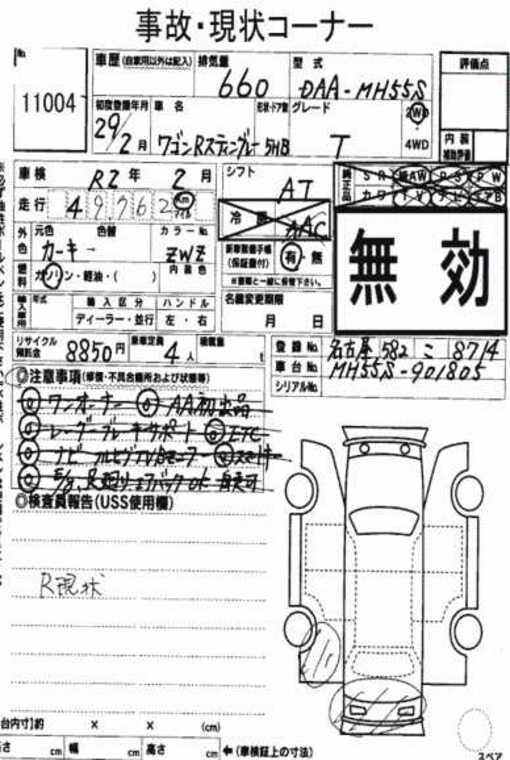 事故・現状コーナー
No.
11004
車歴(自家用以外は記入)
排気量
660
型式
DAA-MH55S
評価点
初度登録年月
29/2月
車名
ワゴンRスティングレー
形状・ドア数
5HB
グレード
T
2WD
・
4WD
内装
補助評価
車検
R2年2月
シフト
AT
純正品
SR
純AW
PS
PW
カワ
ナビ
TV
エアB
走行
49,762
Km
マイル
冷房
AAC
無効
外色
元色
カーキー
色替
カラーNo.
ZWZ
内装色
新車整備手帳
(保証書付)
有・無
※書類と一緒に保管下さい。
燃料
ガソリン・軽油・( )
名義変更期限
月 日
輸入車用
年式
輸入区分
ハンドル
ディーラー・並行
左・右
リサイクル
預託金
8850円
乗車定員
4人
積載量
t
登録No.
名古屋 582 こ 8714
車台No.
MH55S-901805
シリアルNo.
◎注意事項(修復・不具合箇所および状態等)
◎ワンオーナー ◎AA初出品
◎レーダーブレーキサポート ◎ETC
◎ナビ フルセグTV Bモニター ◎スマートキー
◎検査員報告(USS使用欄)
R現状
台内寸】約 × × (cm)
高さ cm 幅 cm 高さ cm
←(車検証上の寸法)
スペア